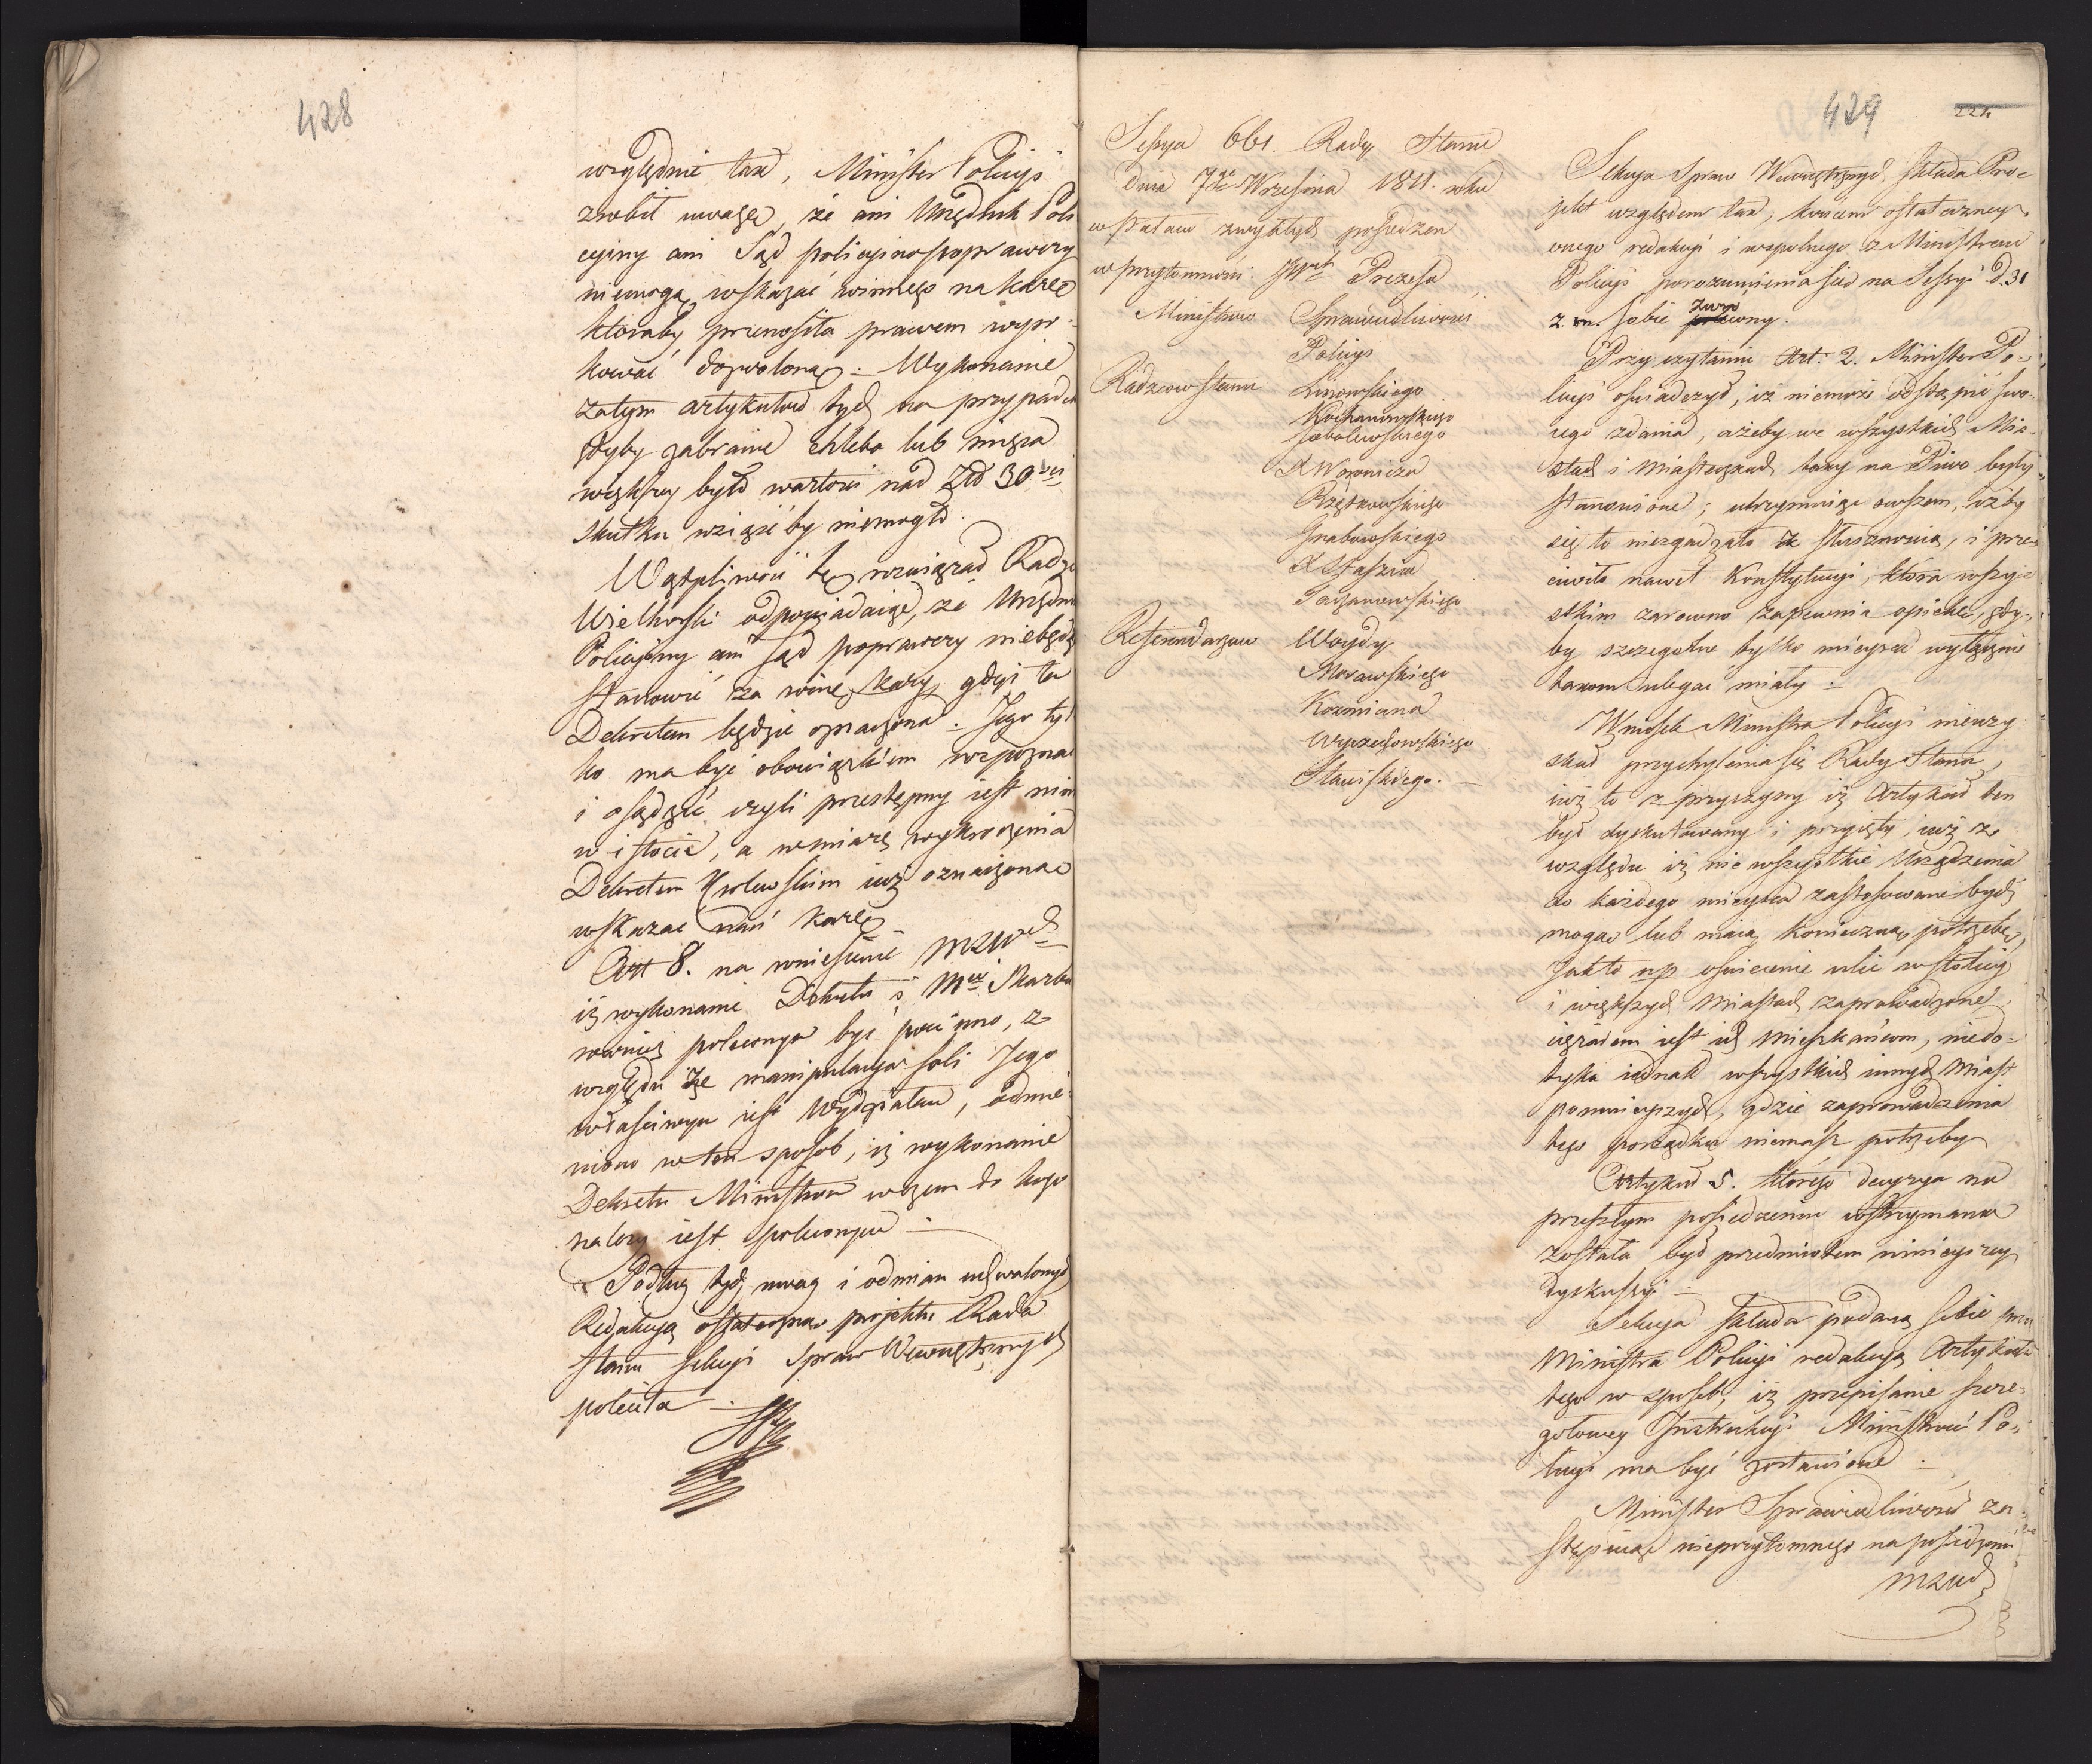 428
względnie tax, Minister Policyi
zrobił uwagę, że ani Urzędnik Poli
cyiny ani Sąd policyinopoprawczy
niemogą wskazać winnego na karę
ktoraby przenosiła prawem wyro-
kować dozwoloną. Wykonanie
zatym artykułow tych na przypadek
gdyby zabranie chleba lub mięsa
większey było wartości nad Złł 30
skutku wziąśćby niemogło.
Wątpliwość tę rozwiązał Radzca
Wielhorski odpowiadaiąc, że Urzędnik
Policyiny ani Sąd poprawczy niebędą
stanowić za winę kary, gdyż ta
Dekretem będzie oznaczona. Jego tyl
ko ma być obowiązkiem rozpoznać
i osądzić czyli przestępny iest nim
w istocie, a w miarę wykroczenia
Dekretem Krolewskim iuż oznaczoną
wskazać nań karę
Art 8. na wniesienie MSW
iż wykonanie Dekretu i Mwi Skarbu
rownież poleconym być powinno, z
względu że manipulacya soli Jego
właściwym iest Wydziałem, odmie-
niono w ten sposób, iż wykonanie
Dekretu Ministrom w czem do kogo
należy iest poleconem
Podług tych uwag i odmian uchwalonych
Redakcyą ostateczną projektu Rada
Stanu Sekcyi Spraw Wewnętrznych
poleciła
429
224
Sessya 661. Rady Stanu
Dnia 7go Września 1811. roku
w Pałacu zwykłych posiedzeń
w przytomności JW Prezesa
Ministrow Sprawiedliwości
Policyi
Radzcow Stanu Linowskiego
Kochanowskiego
Sobolewskiego
X Woronicza
Grabowskiego
X Staszica
Referendarzow Woydy
Morawskiego
Kozmiana
Wyczechowskiego
Sekcya Spraw Wewnętrznych składa Pro-
jekt względem tax, końcem ostateczney
onego redakcyi i wspólnego z Ministrem
Policyi porozumienia się na Sessyi D. 31
z. m. sobie zwrocony.
Przy czytaniu Art: 2. Minister Po-
licyi oświadczył, iż niemoże odstąpić swo-
iego zdania, ażeby we wszystkich Mia-
stach i Miasteczkach taxy na Piwo były
stanowione; utrzymuiąc owszem, iżby
się to niezgadzało ze słusznością, i prze-
ciwiło nawet Konstytucyi, która wszy-
stkim zarowno zapewnia opiekę, gdy-
by szczególne tylko mieysca wyłącznie
taxom ulegać miały.
Wniosek Ministra Policyi nieuzy
skał przychylenia się Rady Stanu,
iuż to z przyczyny iż Artykuł ten
był dyskutowany i przyięty, iuż ze
względu iż nie wszystkie Urządzenia
do każdego mieysca zastosowane być
mogą lub maią konieczną potrzebę,
Jak to np. oświecenie ulic w stolicy
i większych Miastach zaprowadzone,
ciężarem iest ich Mieszkańcom, niedo-
tyka iednak wszystkich innych Miast
pomnieyszych, gdzie zaprowadzenia
tego porządku niemasz potrzeby
Artykuł 5. którego decyzya na
przeszłym posiedzeniu wstrzymana
została był przedmiotem ninieyszey
Dyskussyi
Sekcya składa podaną sobie przez
Ministra Policyi redakcyą Artykułu
tego w sposób, iż przepisanie szcze-
gołowey Instrukcyi Ministrowi Po-
licyi ma być zostawione.
Minister Sprawiedliwości za-
stępuiąc nieprzytomnego na posiedzeniu